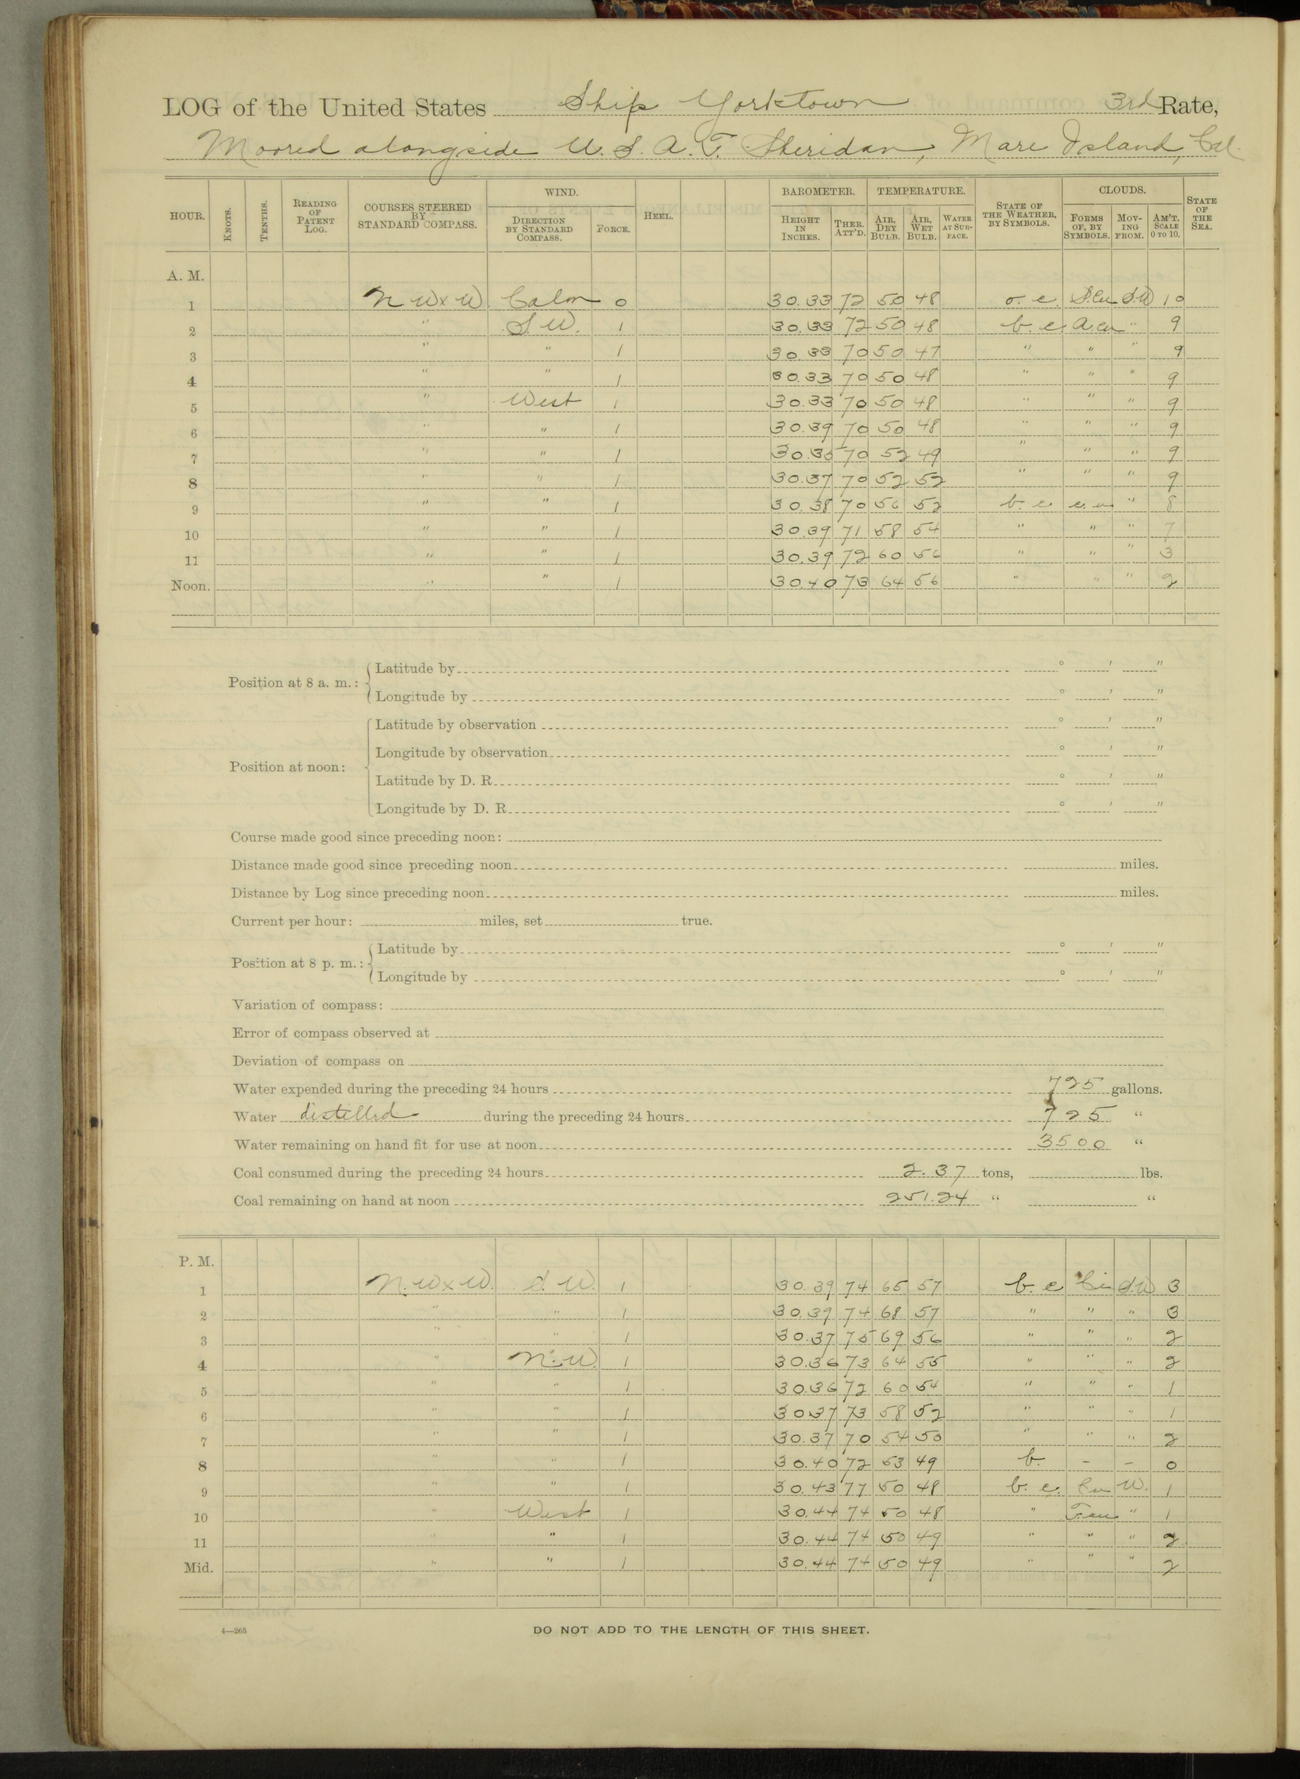 LOG of the United States Ship Yorktown 3rd Rate,
Moored alongside U. S. A. T. Sheridan, Mare Island, Cal.
HOUR. KNOTS. TENTHS. READING OF PATENT LOG. COURSES STEERED BY STANDARD COMPASS. WIND. DIRECTION BY STANDARD COMPASS. FORCE. HEEL. BAROMETER. HEIGHT IN INCHES. THER. ATT'D. TEMPERATURE. AIR, DRY BULB. AIR, WET BULB. WATER AT SURFACE. STATE OF THE WEATHER, BY SYMBOLS. CLOUDS. FORMS OF, BY SYMBOLS. MOVING FROM. AM'T. SCALE 0 TO 10. STATE OF THE SEA.
A. M.
1 N W x W Calm 0 30.33 72 50 48 o. c. S.Cu S.W 10
2 " S.W. 1 30.33 72 50 48 b. c. A.cu " 9
3 " " 1 30.33 70 50 47 " " " 9
4 " " 1 30.33 70 50 48 " " " 9
5 " West 1 30.33 70 50 48 " " " 9
6 " " 1 30.39 70 50 48 " " " 9
7 " " 1 70 52 49 " " " 9
8 " " 1 30.37 70 52 52 " " " 9
9 " " 1 30.38 70 56 52 b. c. " 8
10 " " 1 30.39 71 58 54 " " " 7
11 " " 1 30.39 72 60 56 " " " 3
Noon. " " 1 30.40 73 64 56 " " " 2
Position at 8 a. m.: Latitude by ° ' "
Longitude by ° ' "
Position at noon: Latitude by observation ° ' "
Longitude by observation ° ' "
Latitude by D. R. ° ' "
Longitude by D. R. ° ' "
Course made good since preceding noon:
Distance made good since preceding noon miles.
Distance by Log since preceding noon miles.
Current per hour: miles, set true.
Position at 8 p. m.: Latitude by ° ' "
Longitude by ° ' "
Variation of compass:
Error of compass observed at
Deviation of compass on
Water expended during the preceding 24 hours 725 gallons.
Water distilled during the preceding 24 hours 725 "
Water remaining on hand fit for use at noon 3500 "
Coal consumed during the preceding 24 hours 2.37 tons, lbs.
Coal remaining on hand at noon 251.24 " "
P. M.
1 N. W x W. S. W. 1 30.39 74 65 57 b. c Ci S.W 3
2 " " 1 30.39 74 68 57 " " " 3
3 " " 1 30.37 75 69 56 " " " 2
4 " N. W 1 30.36 73 64 55 " " " 2
5 " " 1 30.36 72 60 54 " " " 1
6 " " 1 30.37 73 58 52 " " " 1
7 " " 1 30.37 70 54 50 " " " 2
8 " " 1 30.40 72 53 49 b. - - 0
9 " " 1 30.43 77 50 48 b. c. Cu W. 1
10 " West 1 30.44 74 50 48 " " 1
11 " " 1 30.44 74 50 49 " " " 2
Mid. " " 1 30.44 74 50 49 " " " 2
4—265
DO NOT ADD TO THE LENGTH OF THIS SHEET.